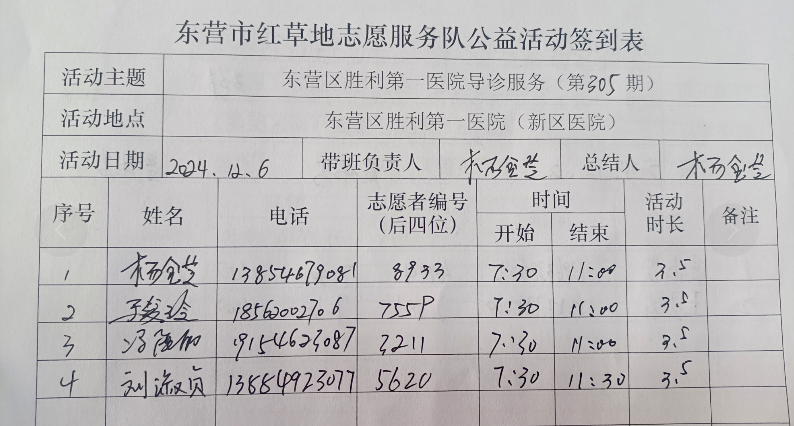 东营市红草地志愿服务队公益活动签到表
活动主题 东营区胜利第一医院导诊服务（第305期）
活动地点 东营区胜利第一医院（新区医院）
活动日期 2024.12.6 带班负责人 杨金芝 总结人 杨金芝
序号 姓名 电话 志愿者编号（后四位） 时间 开始 结束 活动时长 备注
1 杨金芝 13854679081 8933 7:30 11:00 3.5
2 18562002706 7559 7:30 11:00 3.5
3 19154623087 3211 7:30 11:00 3.5
4 刘淑贞 13884923077 5620 7:30 11:30 3.5